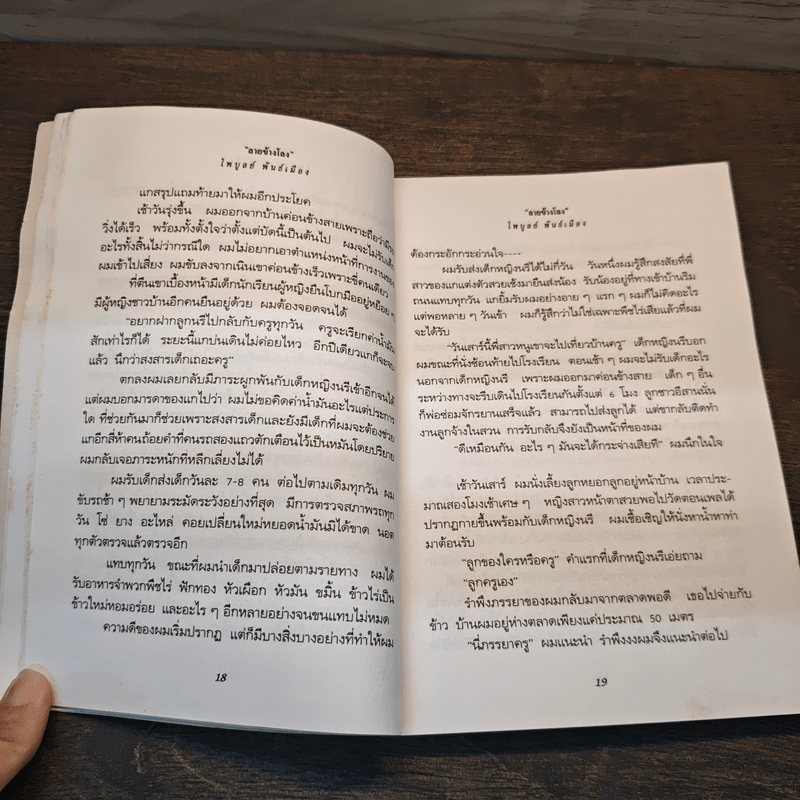 "ลายช้างโลง"
ไพบูลย์ พันธ์เมือง
แกสรุปแถมท้ายมาให้ผมอีกประโยค
เช้าวันรุ่งขึ้น ผมออกจากบ้านค่อนข้างสายเพราะถือว่ามีรถ
วิ่งได้เร็ว พร้อมทั้งตั้งใจว่าตั้งแต่บัดนี้เป็นต้นไป ผมจะไม่รับเด็ก
อะไรทั้งสิ้นไม่ว่ากรณีใด ผมไม่อยากเอาตำแหน่งหน้าที่การงานของ
ผมเข้าไปเสี่ยง ผมขับลงจากเนินเขาค่อนข้างเร็วเพราะขี่คนเดียว
ที่ตีนเขาเบื้องหน้ามีเด็กนักเรียนผู้หญิงยืนโบกมืออยู่หย็อย ๆ
มีผู้หญิงชาวบ้านอีกคนยืนอยู่ด้วย ผมต้องจอดจนได้
"อยากฝากลูกนรีไปกลับกับครูทุกวัน ครูจะเรียกค่าน้ำมัน
สักเท่าไรก็ได้ ระยะนี้แกบ่นเดินไม่ค่อยไหว อีกปีเดียวแกก็จะจบ
แล้ว นึกว่าสงสารเด็กเถอะครู"
ตกลงผมเลยกลับมีภาระผูกพันกับเด็กหญิงนรีเข้าอีกจนได้
แต่ผมบอกมารดาของแกไปว่า ผมไม่ขอคิดค่าน้ำมันอะไรแต่ประการ
ใด ที่ช่วยกันมาก็ช่วยเพราะสงสารเด็กและยังมีเด็กที่ผมจะต้องช่วย
แกอีกสี่ห้าคนถ้อยคำที่คนรถสองแถวตักเตือนไว้เป็นหมันโดยปริยาย
ผมกลับเจอภาระหนักที่หลีกเลี่ยงไม่ได้
ผมรับเด็กส่งเด็กวันละ 7-8 คน ต่อไปตามเดิมทุกวัน ผม
ขับรถช้า ๆ พยายามระมัดระวังอย่างที่สุด มีการตรวจสภาพรถทุก
วัน โซ่ ยาง อะไหล่ คอยเปลี่ยนใหม่หยอดน้ำมันมิได้ขาด นอต
ทุกตัวตรวจแล้วตรวจอีก
แทบทุกวัน ขณะที่ผมนำเด็กมาปล่อยตามรายทาง ผมได้
รับอาหารจำพวกพืชไร่ ฟักทอง หัวเผือก หัวมัน ขมิ้น ข้าวไร่เป็น
ข้าวใหม่หอมอร่อย และอะไร ๆ อีกหลายอย่างจนขนแทบไม่หมด
ความดีของผมเริ่มปรากฏ แต่ก็มีบางสิ่งบางอย่างที่ทำให้ผม
18
"ลายช้างโลง"
ไพบูลย์ พันธ์เมือง
ต้องกระอักกระอ่วนใจ----
ผมรับส่งเด็กหญิงนรีได้ไม่กี่วัน วันหนึ่งผมรู้สึกสงสัยที่พี่
สาวของแกแต่งตัวสวยเช้งมายืนส่งน้อง รับน้องอยู่ที่ทางเข้าบ้านริม
ถนนแทบทุกวัน แกยิ้มรับผมอย่างอาย ๆ แรก ๆ ผมก็ไม่คิดอะไร
แต่พอหลาย ๆ วันเข้า ผมก็รู้สึกว่าไม่ใช่เฉพาะพืชไร่เสียแล้วที่ผม
จะได้รับ
"วันเสาร์นี้พี่สาวหนูเขาจะไปเที่ยวบ้านครู" เด็กหญิงนรีบอก
ผมขณะที่นั่งซ้อนท้ายไปโรงเรียน ตอนเช้า ๆ ผมจะไม่รับเด็กอะไร
นอกจากเด็กหญิงนรี เพราะผมออกมาค่อนข้างสาย เด็ก ๆ อื่น
ระหว่างทางจะรีบเดินไปโรงเรียนกันตั้งแต่ 6 โมง ลูกชาวอีสานนั่น
ก็พ่อซ่อมจักรยานเสร็จแล้ว สามารถไปส่งลูกได้ แต่ขากลับติดทำ
งานลูกจ้างในสวน การรับกลับจึงยังเป็นหน้าที่ของผม
"ดีเหมือนกัน อะไร ๆ มันจะได้กระจ่างเสียที" ผมนึกในใจ
เช้าวันเสาร์ ผมนั่งเลี้ยงลูกหยอกลูกอยู่หน้าบ้าน เวลาประ-
มาณสองโมงเช้าเศษ ๆ หญิงสาวหน้าตาสวยพอไปวัดตอนเพลได้
ปรากฏกายขึ้นพร้อมกับเด็กหญิงนรี ผมเชื้อเชิญให้นั่งหาน้ำหาท่า
มาต้อนรับ
"ลูกของใครหรือครู" คำแรกที่เด็กหญิงนรีเอ่ยถาม
"ลูกครูเอง"
รำพึงภรรยาของผมกลับมาจากตลาดพอดี เธอไปจ่ายกับ
ข้าว บ้านผมอยู่ห่างตลาดเพียงแค่ประมาณ 50 เมตร
"นี่ภรรยาครู" ผมแนะนำ รำพึงงงผมจึงแนะนำต่อไป
19